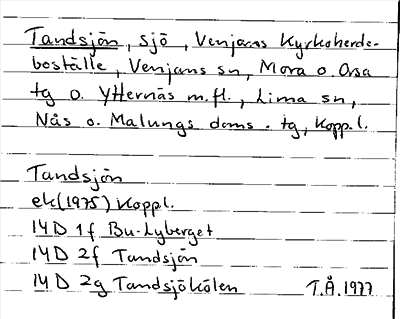 Tandsjön, sjö, Venjans Kyrkoherde-
boställe, Venjans sn, Mora o. Orsa
tg o. Ytternäs m.fl., Lima sn,
Nås o. Malungs doms. tg, Koppl.
Tandsjön
ek (1975) Koppl.
14 D 1f Bu-Lyberget
14 D 2f Tandsjön
14 D 2g Tandsjökölen T.Å. 1977